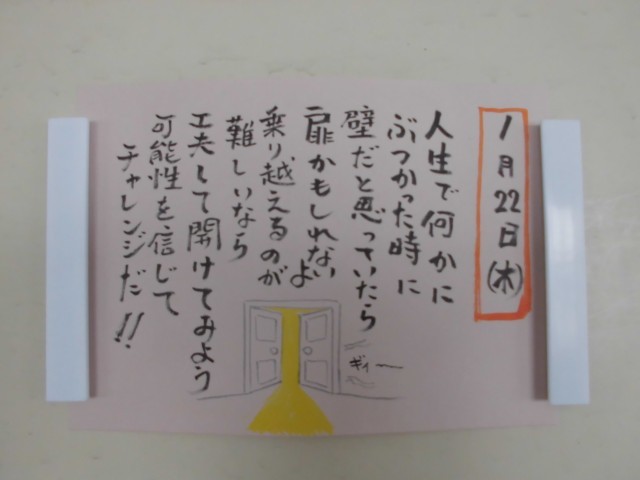 1月22日(木)
人生で何かに
ぶつかった時に
壁だと思っていたら
扉かもしれないよ
乗り越えるのが
難しいなら
工夫して開けてみよう
可能性を信じて
チャレンジだ!!
ギィー